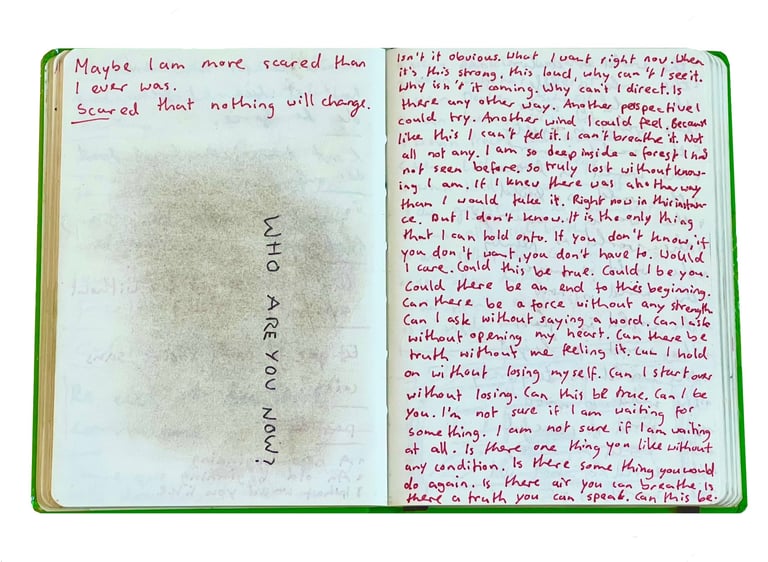 Maybe I am more scared than
I ever was.
Scared that nothing will change.
WHO ARE YOU NOW?
Isn't it obvious. What I want right now. When
it's this strong, this loud, why can't I see it.
Why isn't it coming. Why can't I direct. Is
there any other way. Another perspective I
could try. Another wind I could feel. Because
like this I can't feel it. I can't breathe it. Not
all not any. I am so deep inside a forest I had
not seen before. So truly lost without know-
ing I am. If I knew there was another way
than I would take it. Right now in this instan-
ce. But I don't know. It is the only thing
that I can hold onto. If you don't know, if
you don't want, you don't have to. Would
I care. Could this be true. Could I be you.
Could there be an end to this beginning.
Can there be a force without any strength.
Can I ask without saying a word. Can I ask
without opening my heart. Can there be
truth without me feeling it. Can I hold
on without losing myself. Can I start over
without losing. Can this be true. Can I be
you. I'm not sure if I am waiting for
something. I am not sure if I am waiting
at all. Is there one thing you like without
any condition. Is there some thing you would
do again. Is there air you can breathe. Is
there a truth you can speak. Can this be.